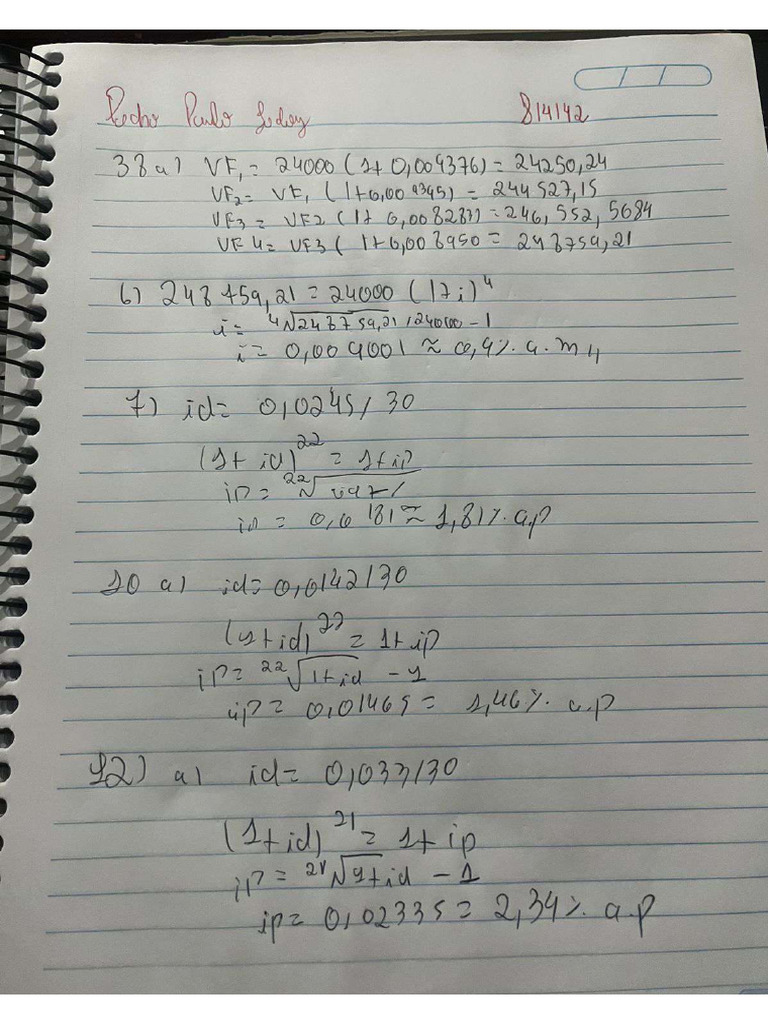 Pedro Paulo Godoy 814142
38 a) VF₁ = 24000 (1 + 0,009376) = 24250,24
VF₂ = VF₁ (1+0,009395) = 244527,15
VF3 = VF2 (1+ 0,008283) = 246,552,5684
VF4 = VF3 ( 1+0,008950 = 248759,21
b) 248759,21 = 24000 (1+i)⁴
i = ⁴√248759,21/240000 - 1
i = 0,009001 ≈ 0,9% a.m
7) id = 0,0245/30
(1 + id)²² = 1+ip
ip = ²²√
ip = 0,0181 ≈ 1,81% a.p
10 a) id = 0,0142/30
(1+id)²² = 1+ip
ip = ²²√1+id - 1
ip = 0,01465 = 1,46% a.p
12) a) id = 0,033/30
(1+id)²¹ = 1+ ip
ip = ²¹√1+id - 1
ip = 0,02335 = 2,34% a.p